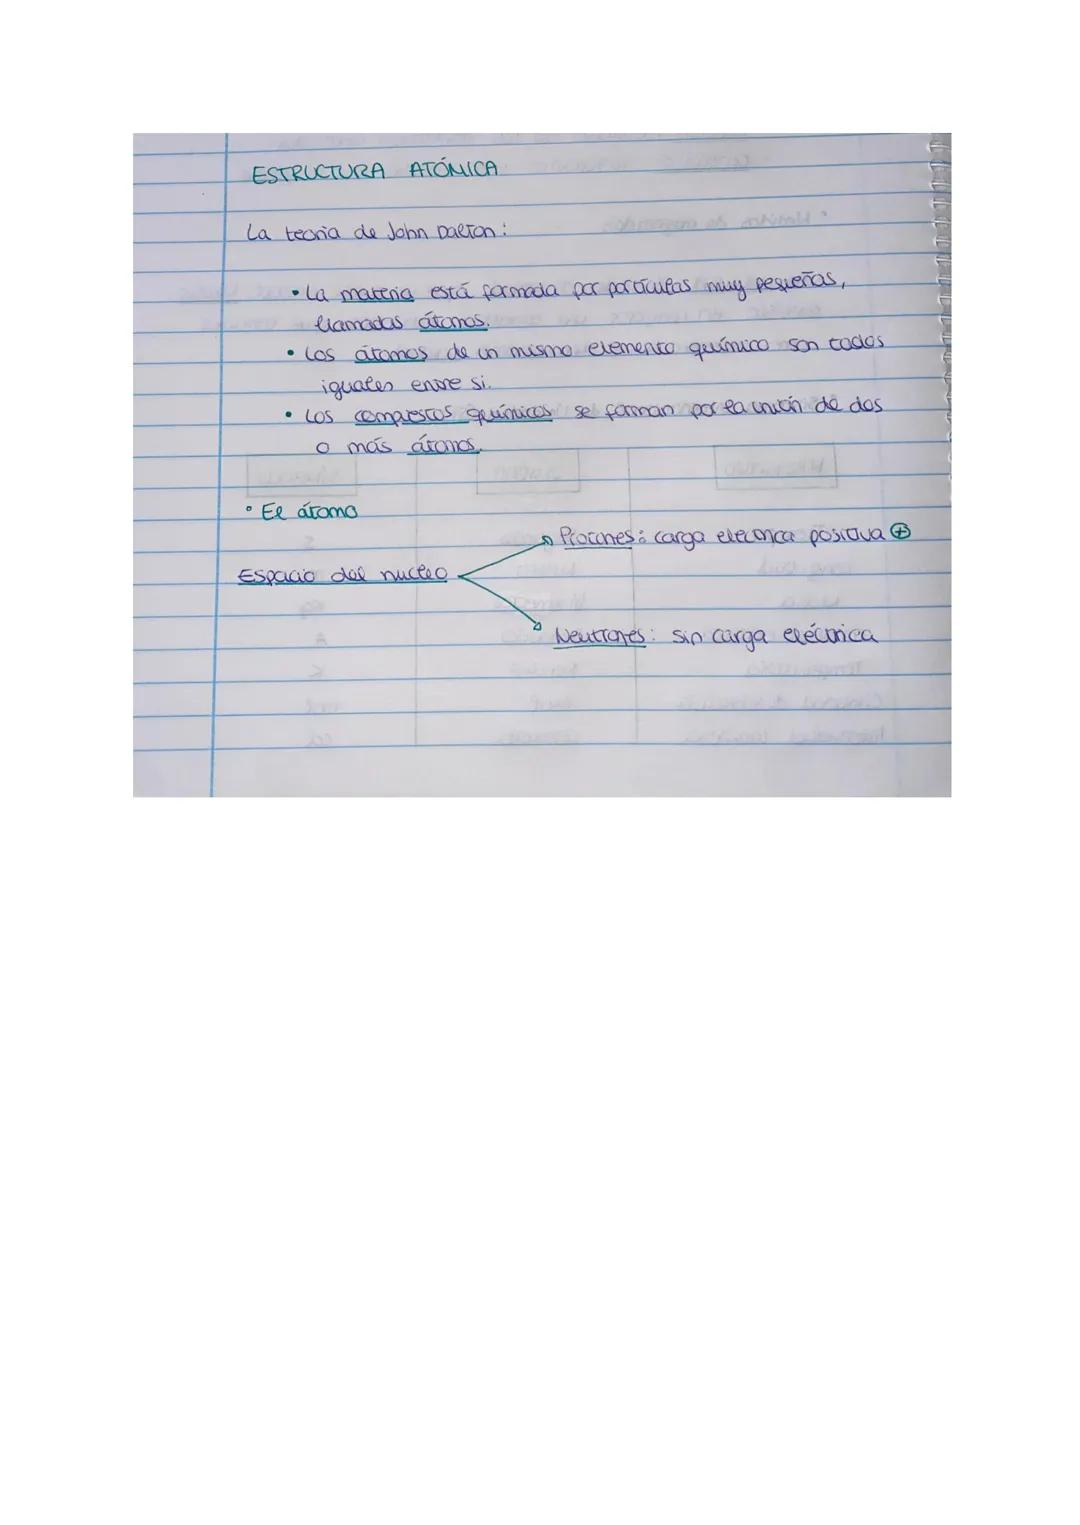 ESTRUCTURA ATÓMICA
La teoria de John Dalton:
• La materia está formada por partículas muy pequeñas,
llamadas átomos.
• Los átomos de un mismo elemento químico son todos
iguales entre si.
• Los compuestos químicos se forman por la unión de dos
o más átomos.
• El átomo
Protones: carga electrica positiva ⊕
Espacio del nucleo
Neutrones: sin carga eléctrica